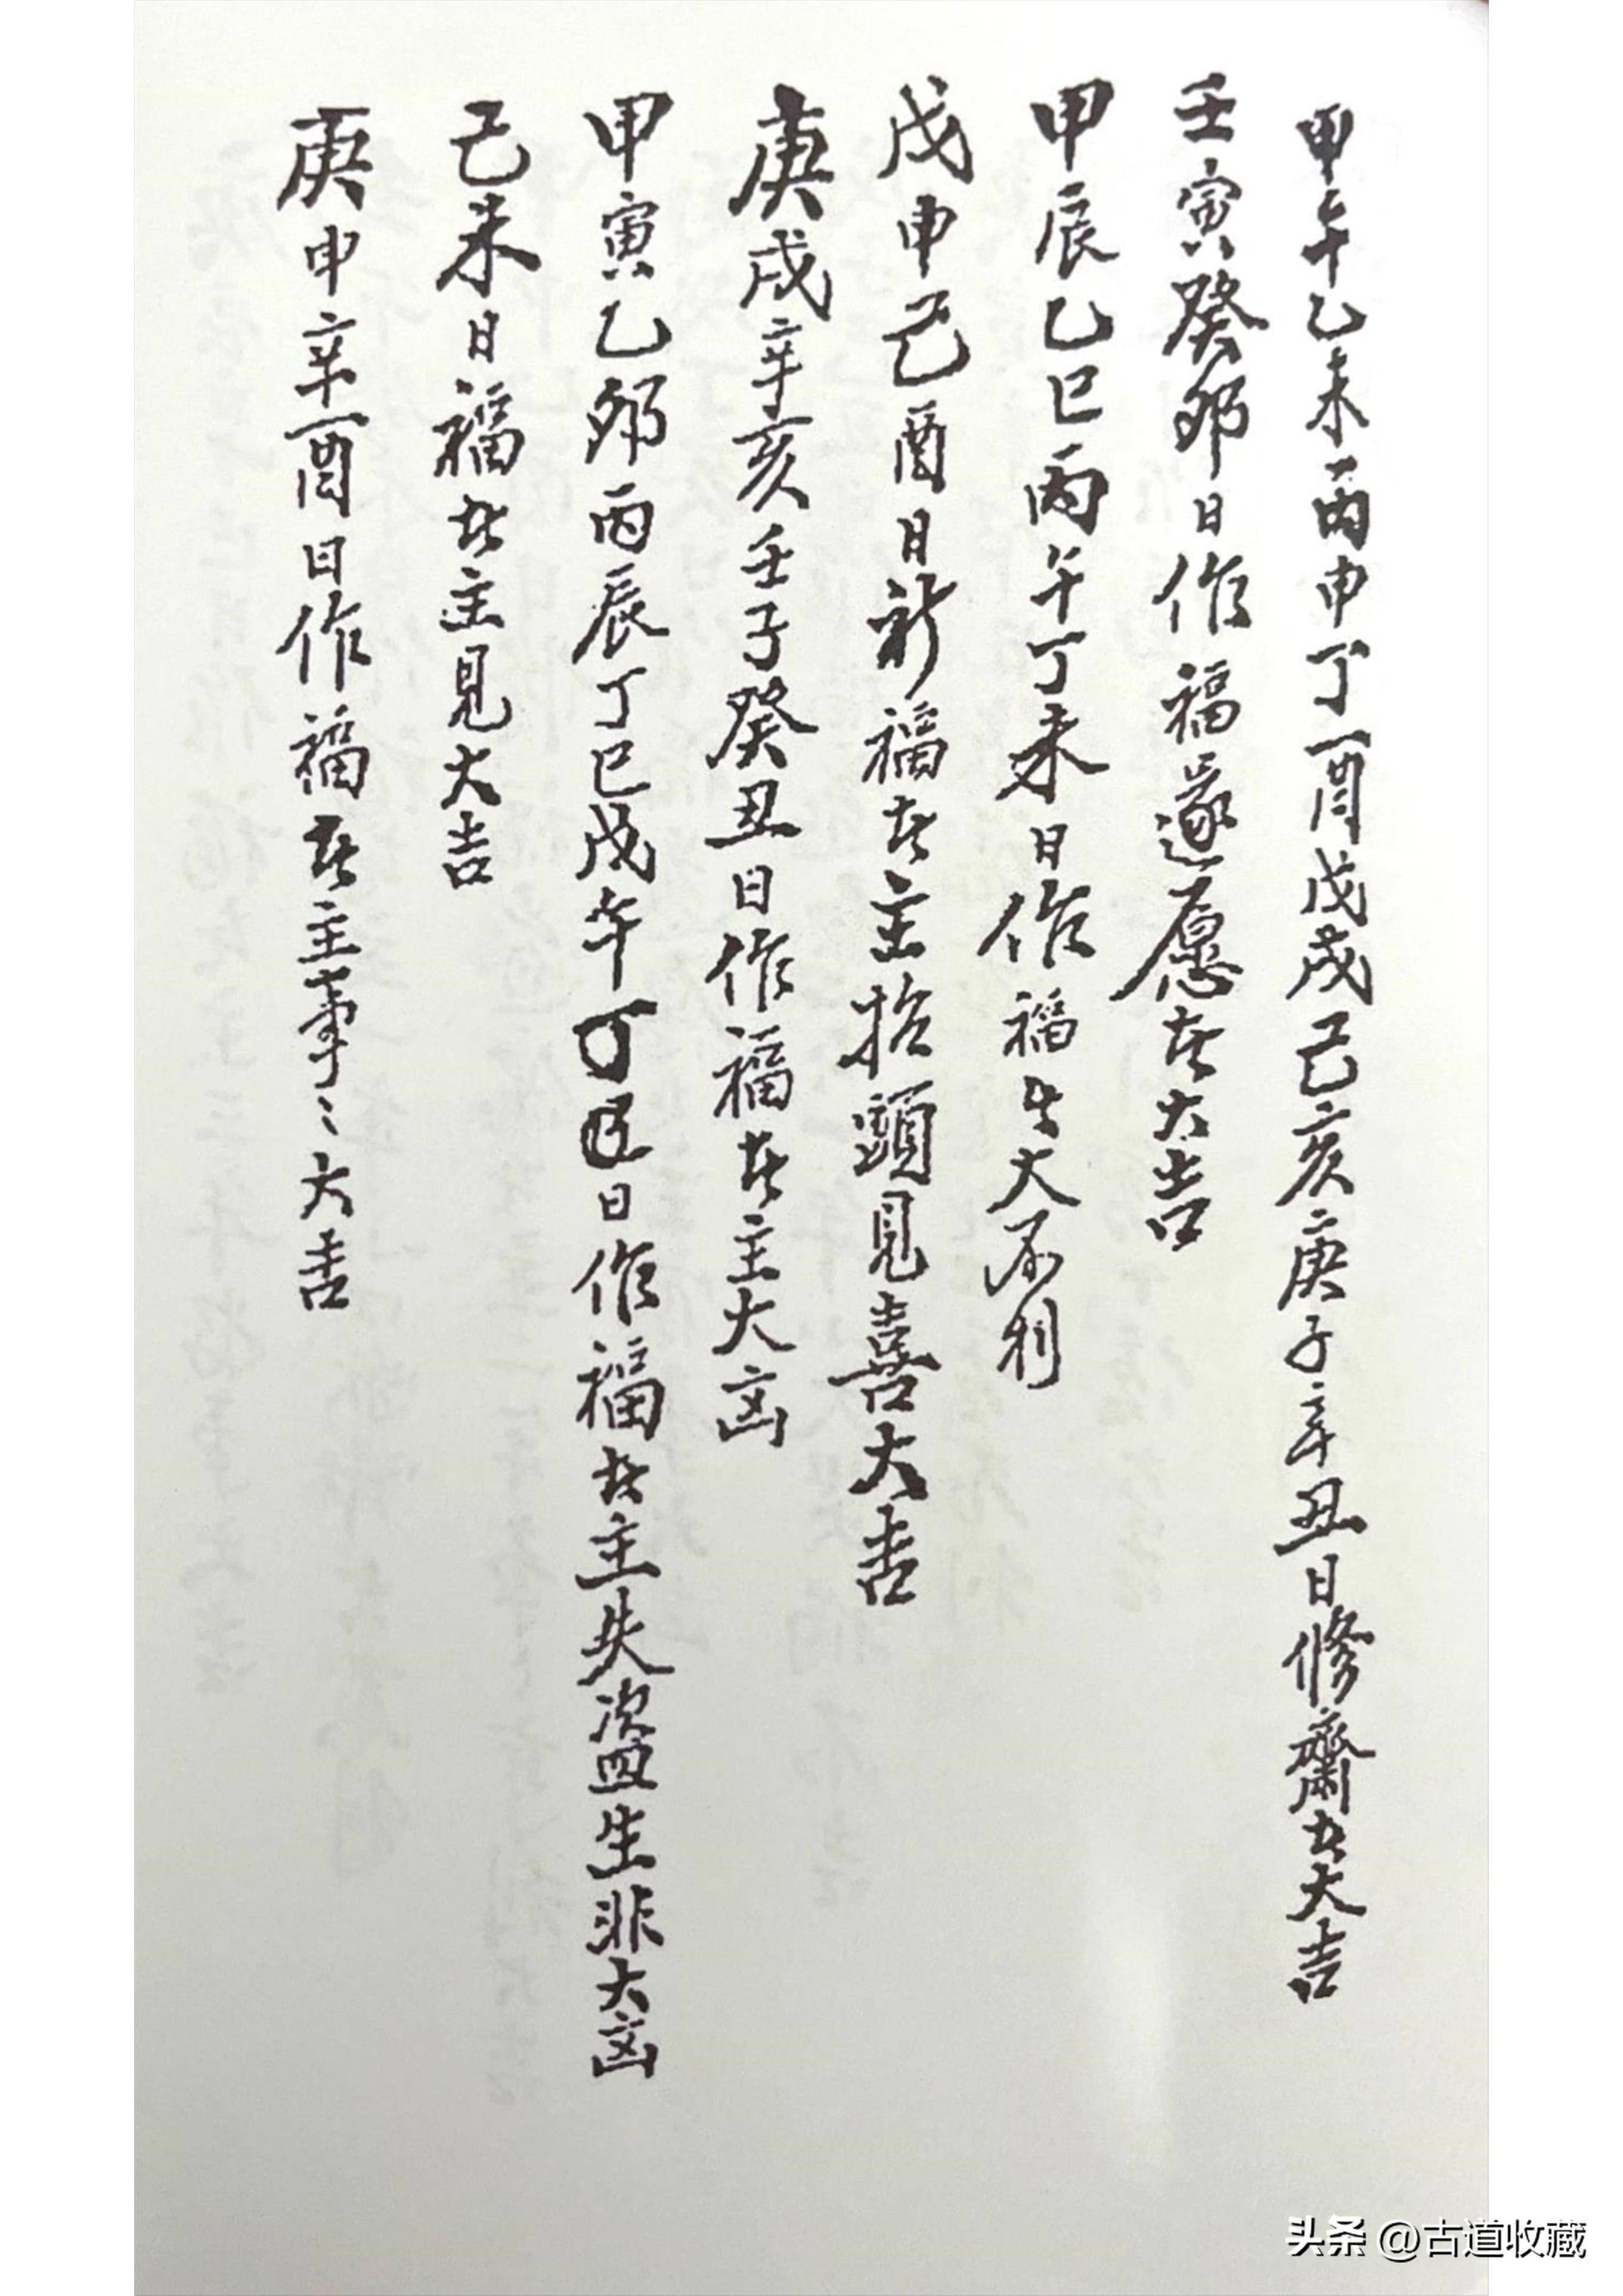 甲午乙未丙申丁酉戊戌己亥庚子辛丑日修齋者大吉
壬寅癸卯日作福遂愿者大吉
甲辰乙巳丙午丁未日作福者大不利
戊申己酉日祈福者主抬頭見喜大吉
庚戌辛亥壬子癸丑日作福者主大凶
甲寅乙卯丙辰丁巳戊午日作福者主失盗生非大凶
己未日福者主見大吉
庚申辛酉日作福者主事〻大吉
头条 @古道收藏